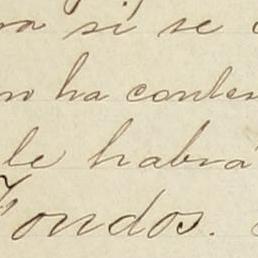 si se
ha conten
le habrá
Fondos.